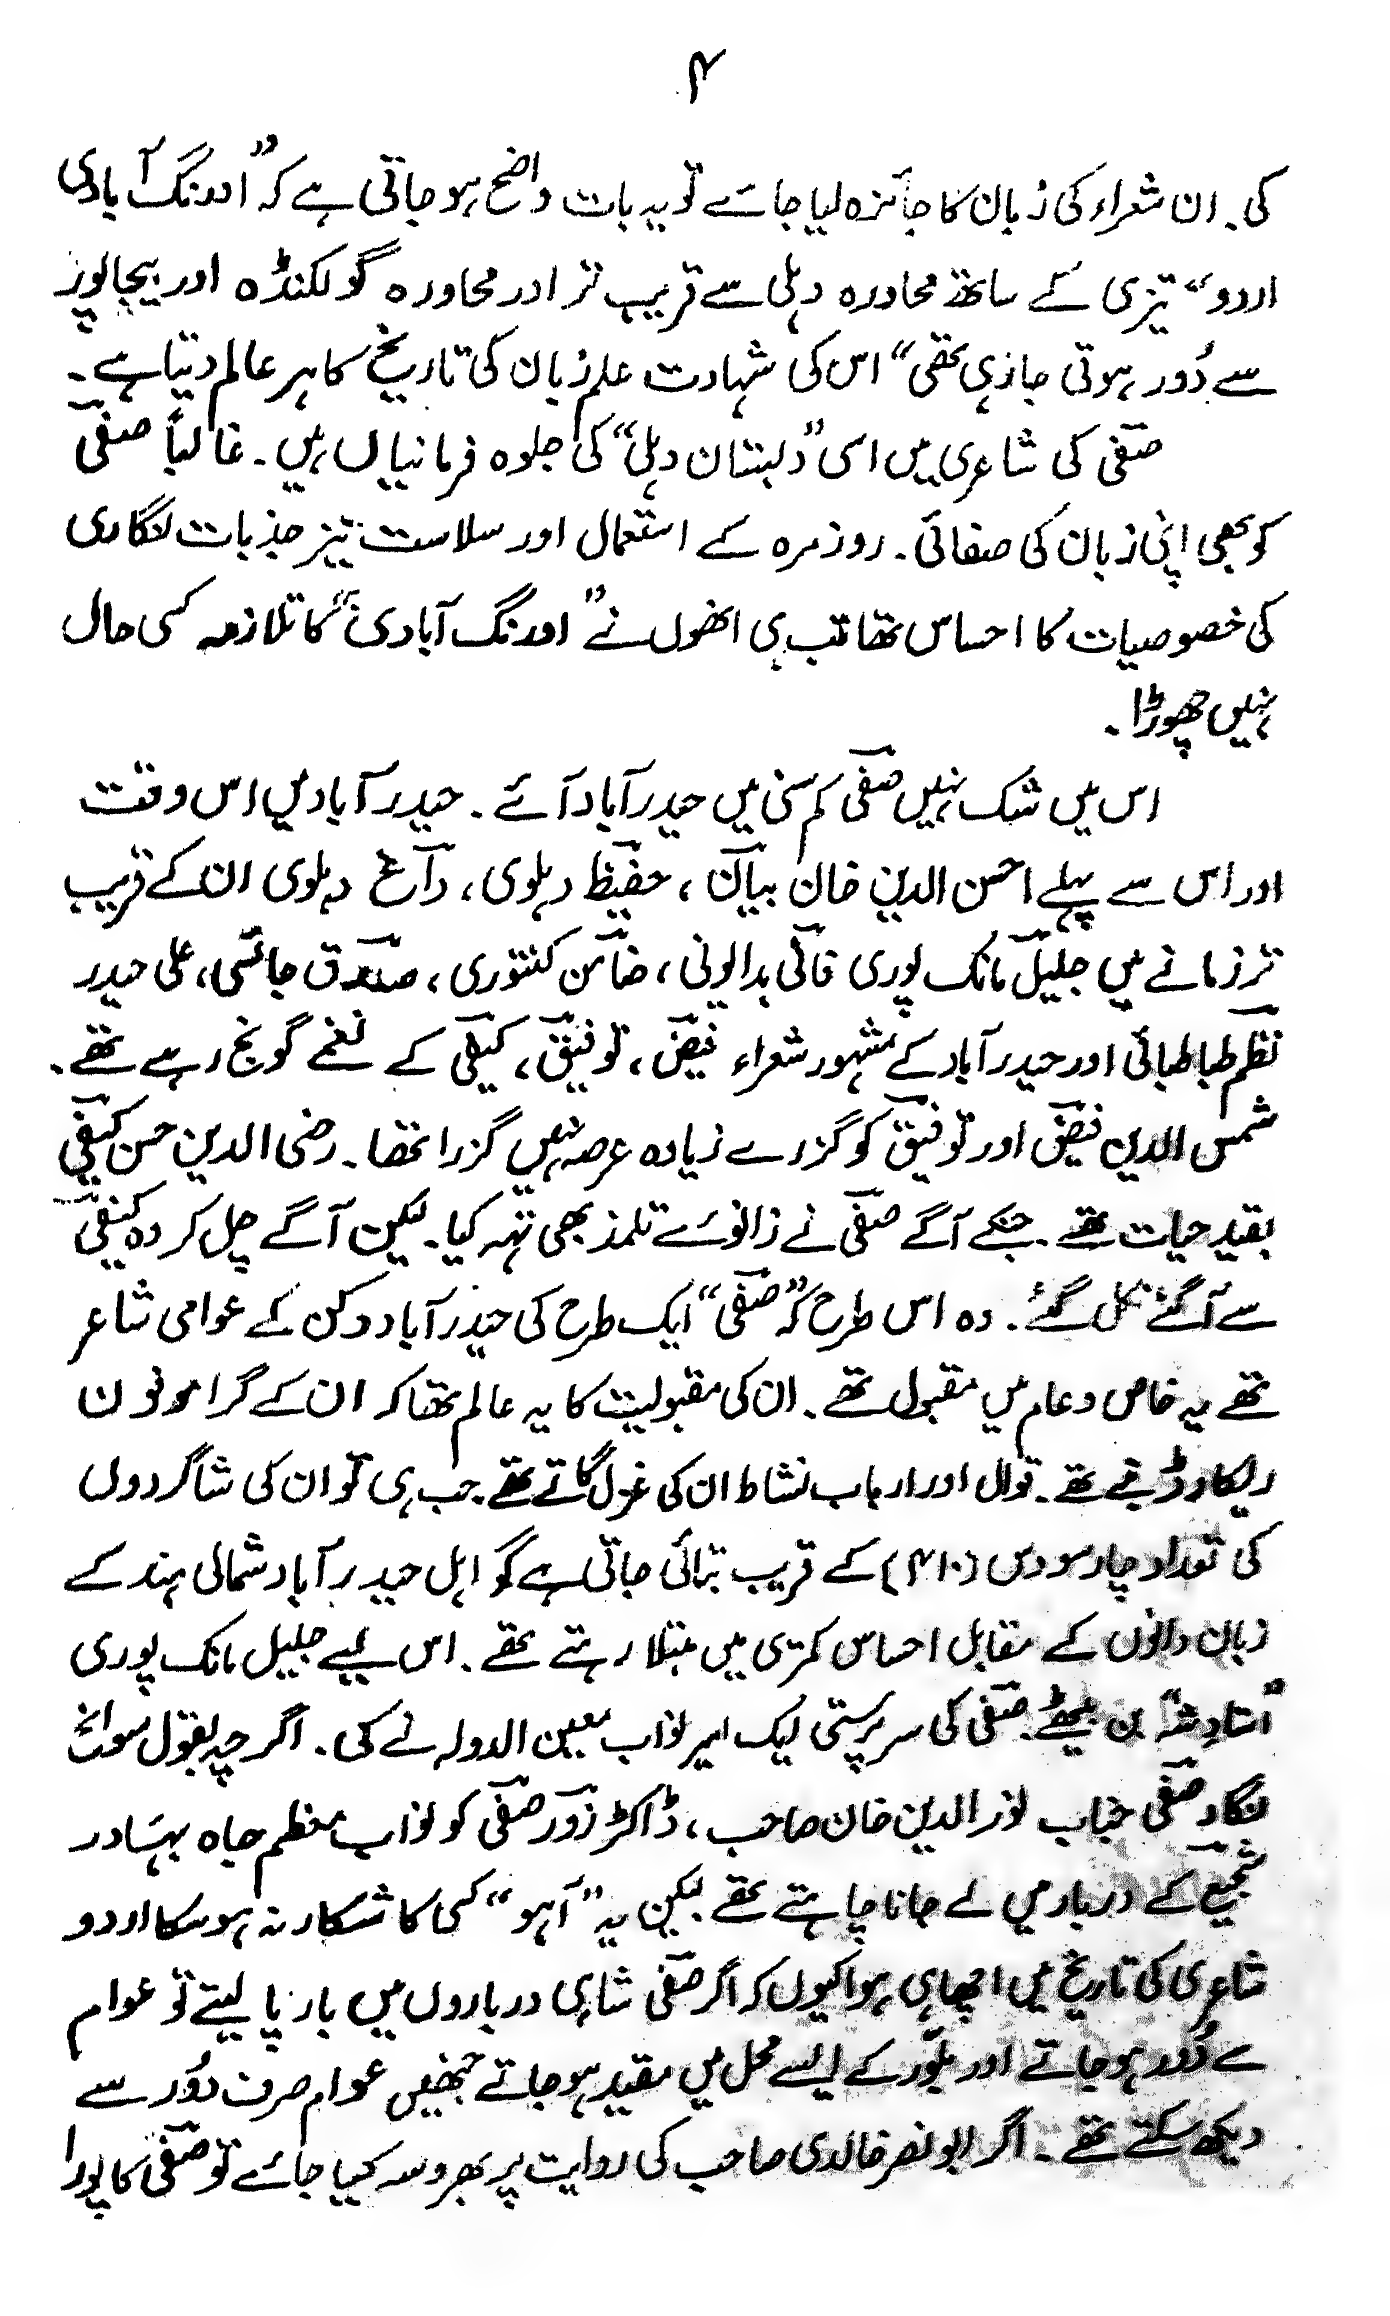 ۴
کی۔ ان شعراء کی زبان کا جائزہ لیا جائے تو یہ بات واضح ہو جاتی ہے کہ "اورنگ آبادی
اردو" تیزی کے ساتھ محاورہ دہلی سے قریب تر اور محاورہ گولکنڈہ اور بیجاپور
سے دُور ہوتی جارہی تھی" اس کی شہادت علم زبان کی تاریخ کا ہر عالم دیتا ہے۔
صفیؔ کی شاعری میں اسی "دبستان دہلی" کی جلوہ فرمائیاں ہیں۔ غالباً صفیؔ
کو بھی اپنی زبان کی صفائی۔ روزمرہ کے استعمال اور سلاست نیز جذبات نگاری
کی خصوصیات کا احساس تھا تب ہی انھوں نے "اورنگ آبادی" کا تلازمہ کسی حال
نہیں چھوڑا۔
اس میں شک نہیں صفیؔ کم سنی میں حیدرآباد آئے۔ حیدرآباد میں اس وقت
اور اس سے پہلے احسن الدین خان بیانؔ، حفیظؔ دہلوی، داغؔ دہلوی ان کے قریب
تر زمانے میں جلیلؔ مانک پوری فانیؔ بدایونی، ضامنؔ کنتوری، صدقؔ جائسی، علی حیدر
نظمؔ طباطبائی اور حیدرآباد کے مشہور شعراء فیضؔ، توفیقؔ، کیفیؔ کے نغمے گونج رہے تھے۔
شمس الدین فیضؔ اور توفیقؔ کو گزرے زیادہ عرصہ نہیں گزرا تھا۔ رضی الدین حسن کیفیؔ
بقید حیات تھے۔ جنکے آگے صفیؔ نے زانوئے تلمذ بھی تہہ کیا۔ لیکن آگے چل کر وہ کیفیؔ
سے آگے نکل گئے۔ وہ اس طرح کہ "صفیؔ" ایک طرح کی حیدرآباد دکن کے عوامی شاعر
تھے یہ خاص و عام میں مقبول تھے۔ ان کی مقبولیت کا یہ عالم تھا کہ ان کے گراموفون
ریکارڈ بنے تھے۔ قوال اور ارباب نشاط ان کی غزل گاتے تھے۔ جب ہی تو ان کی شاگردوں
کی تعداد چار سو دس (۴۱۰) کے قریب بتائی جاتی ہے گو اہل حیدرآباد شمالی ہند کے
زبان دانوں کے مقابل احساس کمتری میں مبتلا رہتے تھے۔ اس لیے جلیل مانک پوری
"استادِ شہ" بن بیٹھے۔ صفیؔ کی سرپرستی ایک امیر نواب معین الدولہ نے کی۔ اگرچہ بقول سوانح
نگار صفیؔ جناب نورالدین خان صاحب، ڈاکٹر زورؔ صفیؔ کو نواب معظم جاہ بہادر
شجیعؔ کے دربار میں لے جانا چاہتے تھے لیکن یہ "آہو" کسی کا شکار نہ ہوسکا اردو
شاعری کی تاریخ میں اچھا ہی ہوا کیوں کہ اگر صفیؔ شاہی درباروں میں بار پا لیتے تو عوام
سے دُور ہو جاتے اور بلّور کے ایسے محل میں مقید ہو جاتے جنھیں عوام صرف دُور سے
دیکھ سکتے تھے۔ اگر ابو نصر خالدی صاحب کی روایت پر بھروسہ کیا جائے تو صفیؔ کا پورا